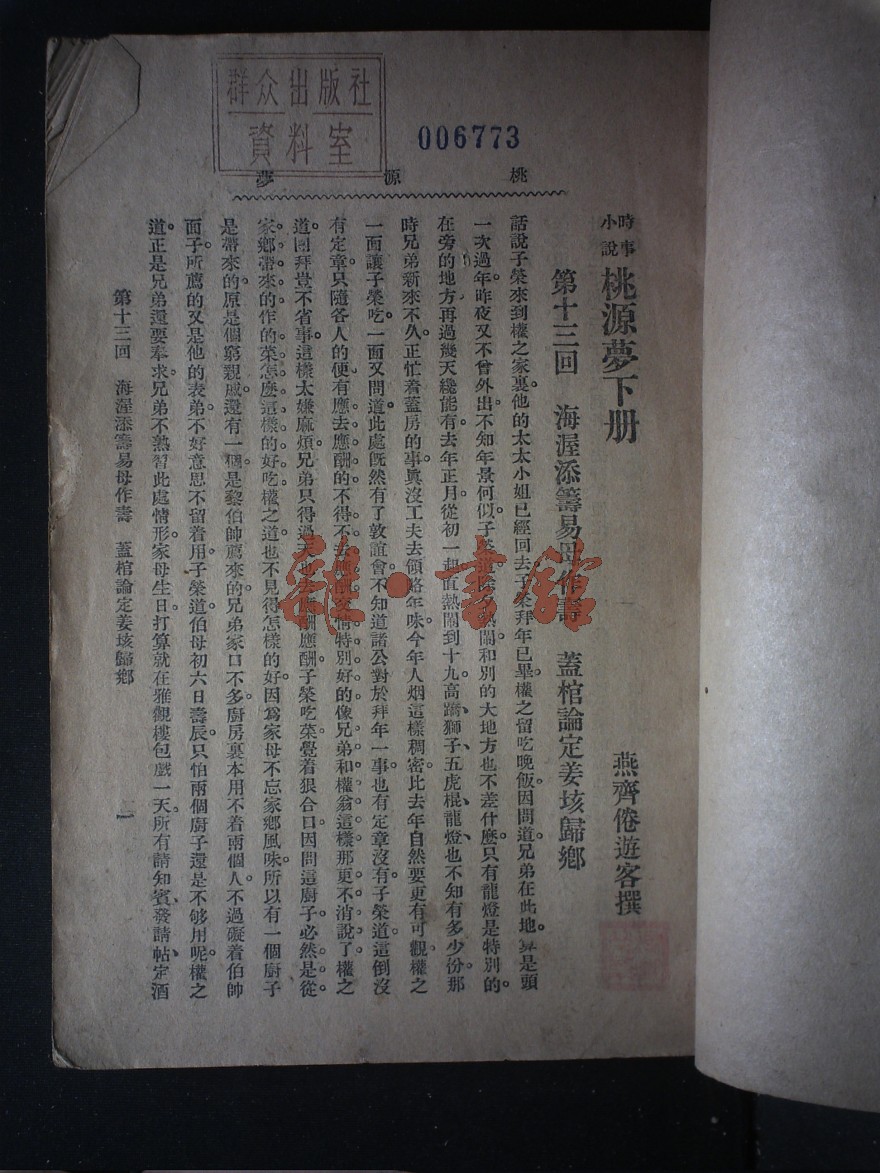 群众出版社
資料室
006773
桃源夢
時事小說 桃源夢下册
燕齊倦遊客撰
第十三回 海渥添籌易母作壽 蓋棺論定姜垓歸鄉
話說子榮來到權之家裏。他的太太小姐已經回去。子榮拜年已畢。權之留吃晚飯。因問道。兄弟在此地。算是頭
一次過年。昨夜又不曾外出。不知年景何似。子榮道。除夕熱鬧。和別的大地方也不差什麽。只有龍燈是特別的。
在旁的地方再過幾天纔能有。去年正月。從初一起直熱鬧到十九。高蹻、獅子、五虎棍、龍燈。也不知有多少份。那
時兄弟新來不久。正忙着蓋房的事。眞沒工夫去領略年味。今年人烟這樣稠密。比去年自然要更有可觀。權之
一面讓子榮吃。一面又問道。此處旣然有了敦誼會。不知道諸公對於拜年一事。也有定章沒有。子榮道。這倒沒
有定章。只隨各人的便。有應去應酬的。不得不去應酬。交情特別好的。像兄弟和權翁這樣。那更不消說了。權之
道。團拜豈不省事。這樣太嫌麻煩。兄弟只得過天也去應酬應酬。子榮吃菜。覺着狠合口。因問這廚子。必然是從
家鄉帶來的。作的菜怎麽這樣的好吃。權之道。也不見得怎樣的好。因爲家母不忘家鄉風味。所以有一個廚子
是帶來的。原是個窮親戚。還有一個。是黎伯帥薦來的。兄弟家口不多。廚房裏本用不着兩個人。不過礙着伯帥
面子。所薦的又是他的表弟。不好意思不留着用。子榮道。伯母初六日壽辰。只怕兩個廚子還是不够用呢。權之
道。正是兄弟還要奉求。兄弟不熟習此處情形。家母生日。打算就在雅觀樓包戲一天。所有請知賓、發請帖、定酒
第十三回 海渥添籌易母作壽 蓋棺論定姜垓歸鄉
一
雜·書館